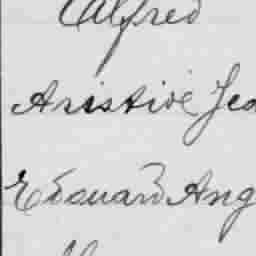 Alfred
Aristide Jea
Edouard Ang